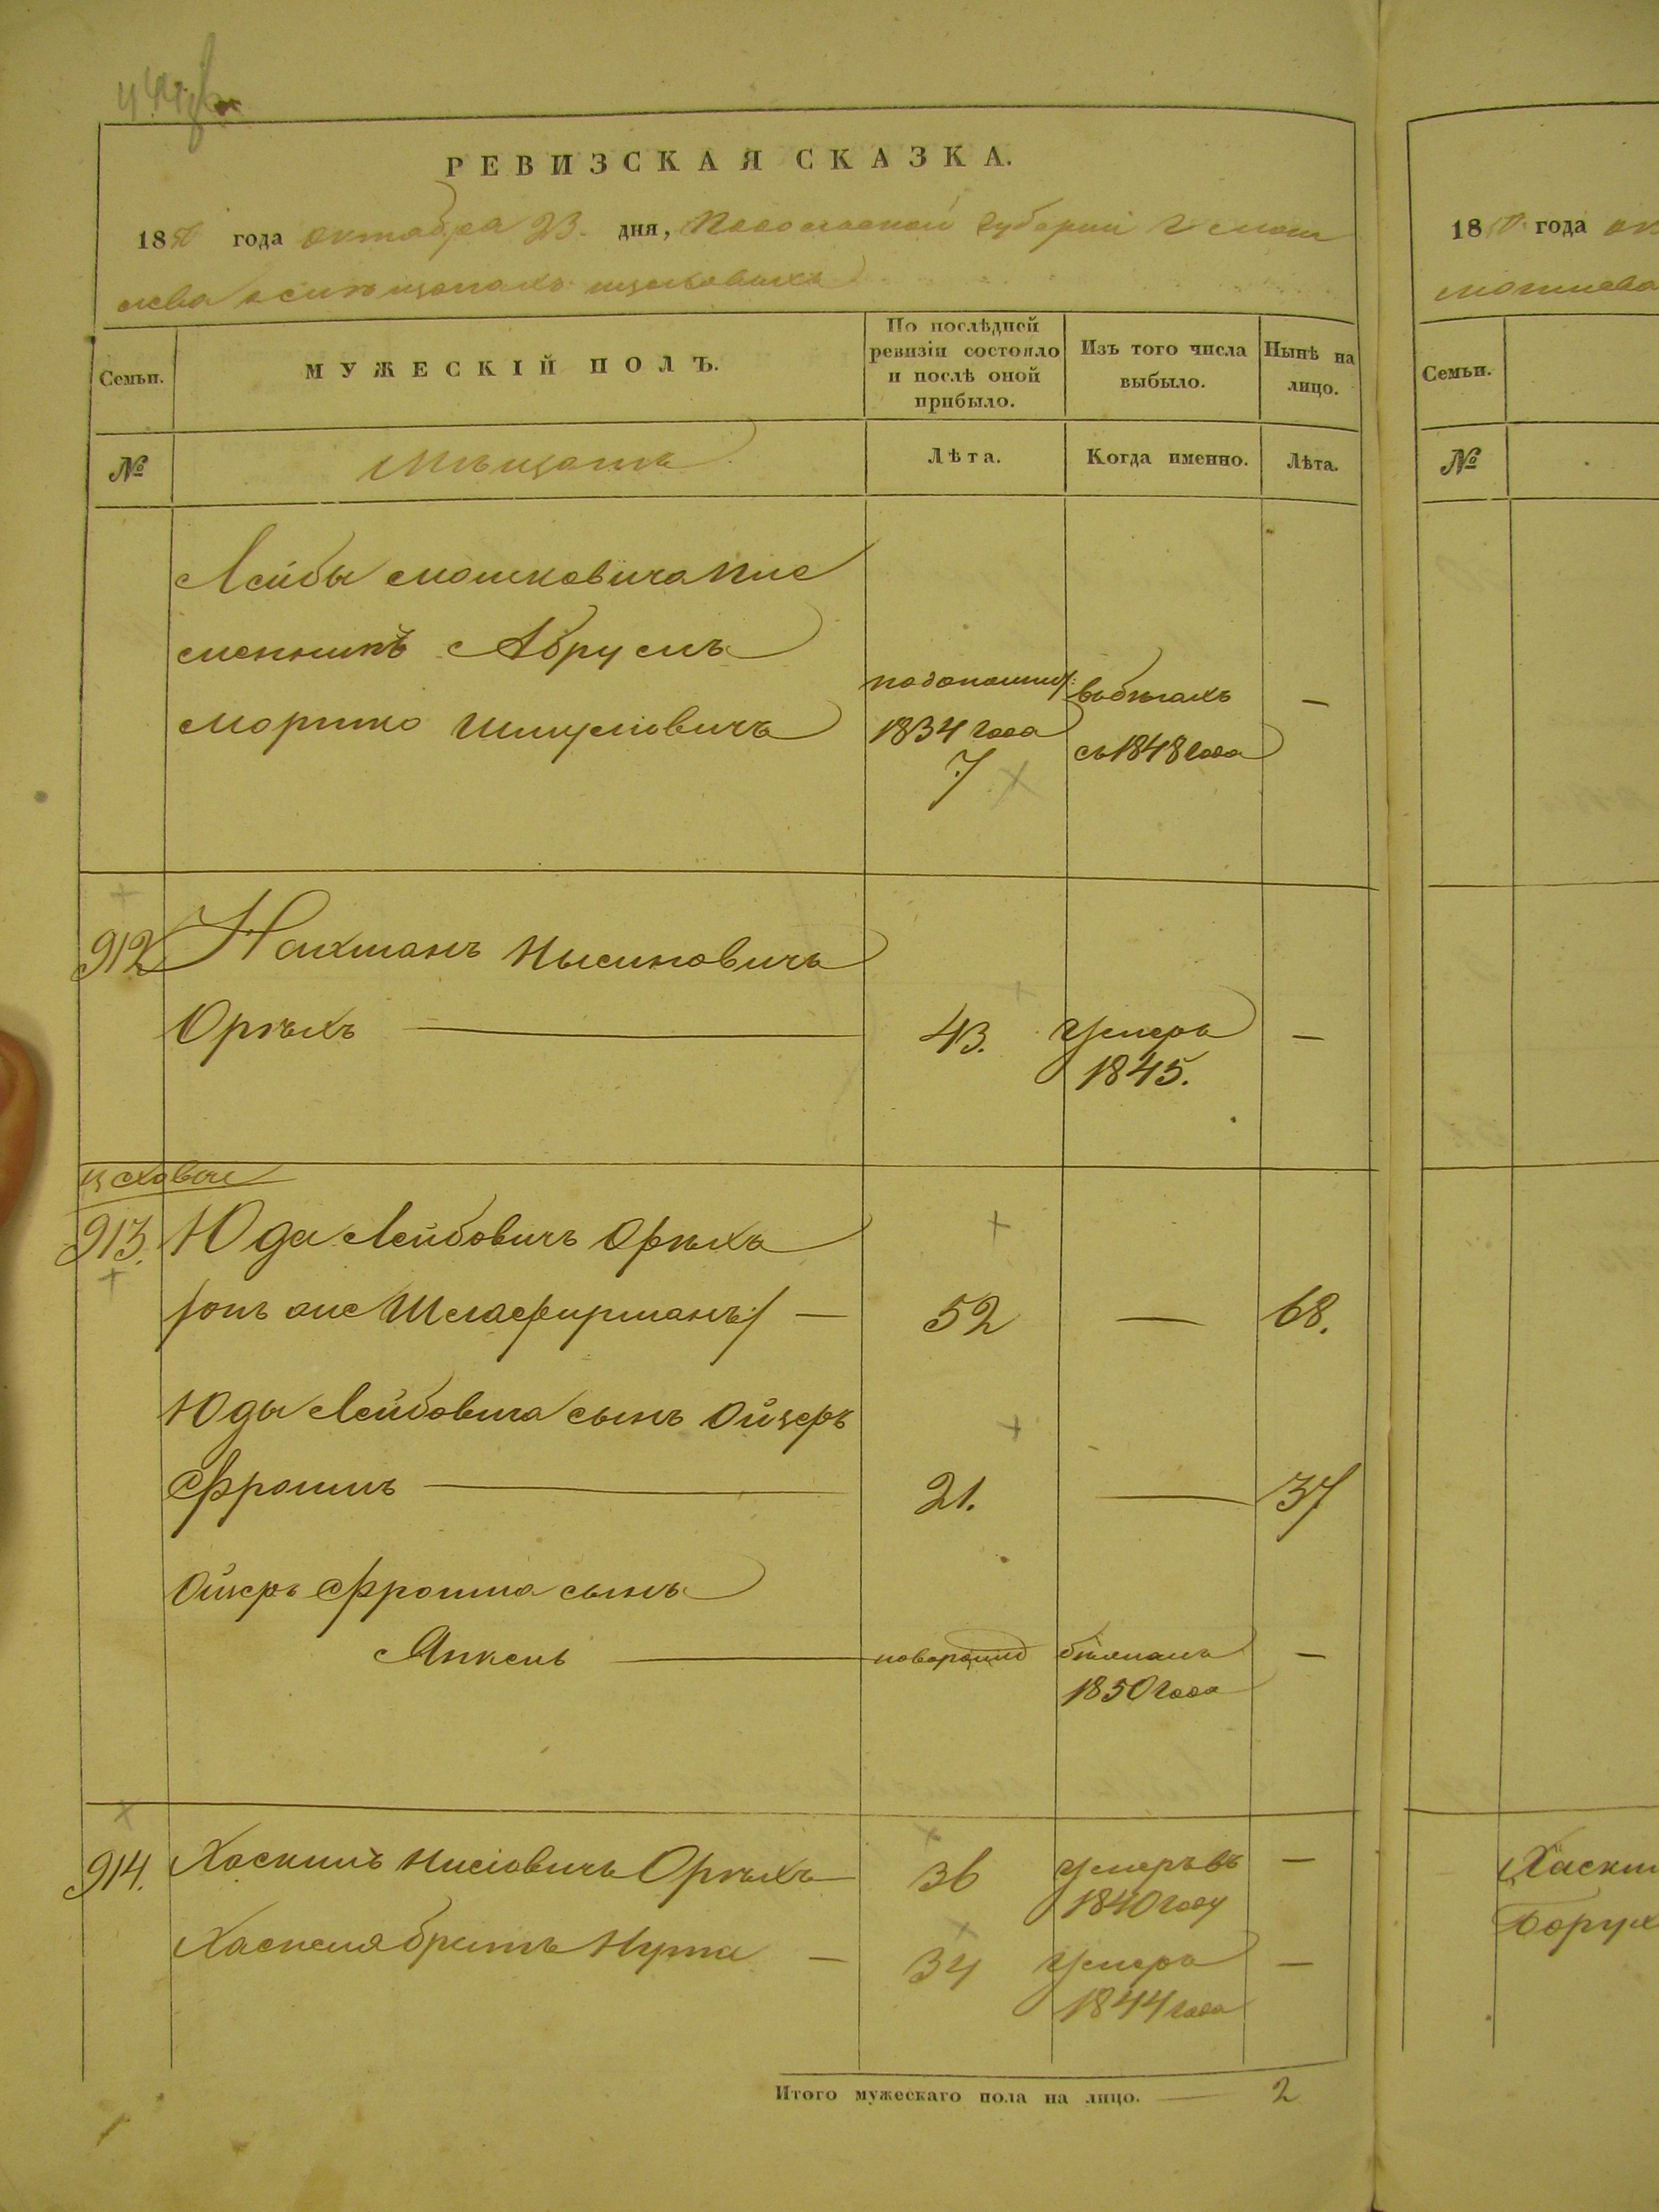 РЕВИЗСКАЯ СКАЗКА.
1850 года октября 23. дня, Подольской Губернии г Моги
лева
Семьи.
МУЖЕСКІЙ ПОЛЪ.
По послѣдней
ревизіи состояло
и послѣ оной
прибыло.
Изъ того числа
выбыло.
Нынѣ на
лицо.
№
Мѣщане
Лѣта.
Когда именно.
Лѣта.
Лейбы Мошковича пле
менникъ Абрумъ
Мортко Шмулiовичъ
1834 года
7
въ бѣгахъ
съ 1848 года
—
912 Нахманъ Нысиновичъ
Оргѣхъ — 43. Умеръ —
1845.
цеховые
913. Юда Лейбовичъ Орѣхъ
/онъ же Шлаферманъ/ — 52 — 68.
Юды Лейбовича сынъ Ойзеръ
Фроимъ — 21. — 37
Ойзеръ Фроима сынъ
Янкель — новорожд —
1850 года
914. Хаскиль Нисіовичъ Орѣхъ 36 Умеръ въ —
1840 году
Хаскеля братъ Нута — 34 Умеръ —
1844 года
Итого мужескаго пола на лицо. — 2
18 года
Могилева
Семьи.
№
Хаски
Борух